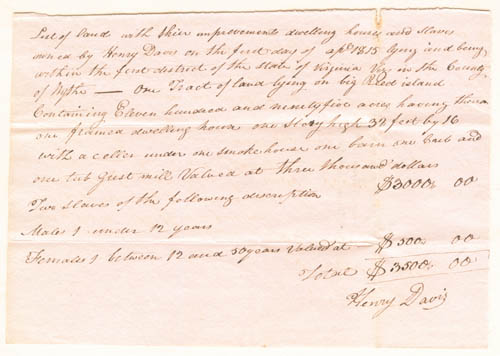 List of land with thier improvements dwelling houses and slaves
owned by Henry Davis on the first day of apl 1815 lying and being
within the first district of the state of Virginia Viz in the County
of Wythe — One Tract of land lying on big Reed island
Containing Eleven hundred and ninety five acres having theron
one framed dwelling house one Story high 32 feet by 16
with a celler under one smoke house one barn one and
one tub Grist mill Valued at three thousand dollars $3000 00
Two slaves of the following description
Males 1 under 12 years
Females 1 between 12 and 50 years Valued at — $500 00
Total $3500 00
Henry Davis